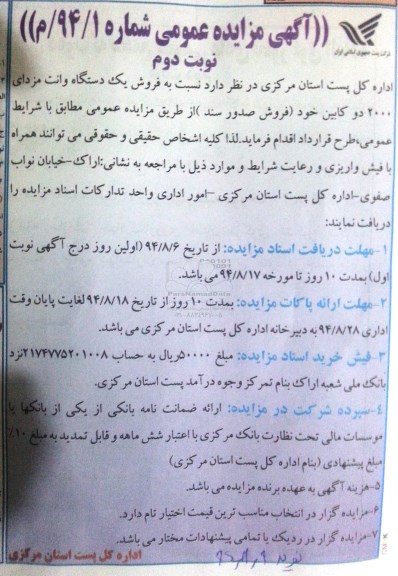 ((آگهی مزایده عمومی شماره ۹۴/۱/م))
شرکت پست جمهوری اسلامی ایران
نوبت دوم
اداره کل پست استان مرکزی در نظر دارد نسبت به فروش یک دستگاه وانت مزدای
۲۰۰۰ دو کابین خود (فروش صدور سند )از طریق مزایده عمومی مطابق با شرایط
عمومی،طرح قرارداد اقدام فرماید.لذا کلیه اشخاص حقیقی و حقوقی می توانند همراه
با فیش واریزی و رعایت شرایط و موارد ذیل با مراجعه به نشانی:اراک-خیابان نواب
صفوی-اداره کل پست استان مرکزی -امور اداری واحد تدارکات اسناد مزایده را
دریافت نمایند:
۱-مهلت دریافت اسناد مزایده: از تاریخ ۹۴/۸/۶ (اولین روز درج آگهی نوبت
اول) بمدت ۱۰ روز تا مورخه ۹۴/۸/۱۷ می باشد.
۲-مهلت ارائه پاکات مزایده: بمدت ۱۰ روز از تاریخ ۹۴/۸/۱۸ لغایت پایان وقت
اداری ۹۴/۸/۲۸ به دبیرخانه اداره کل پست استان مرکزی می باشد.
۳-فیش خرید اسناد مزایده: مبلغ ۵۰۰۰۰ریال به حساب ۲۱۷۴۷۷۵۲۰۱۰۰۸نزد
بانک ملی شعبه اراک بنام تمرکز وجوه درآمد پست استان مرکزی.
۴-سپرده شرکت در مزایده: ارائه ضمانت نامه بانکی از یکی از بانکها یا
موسسات مالی تحت نظارت بانک مرکزی با اعتبار شش ماهه و قابل تمدید به مبلغ ۱۰٪
مبلغ پیشنهادی (بنام اداره کل پست استان مرکزی)
۵-هزینه آگهی به عهده برنده مزایده می باشد.
۶-مزایده گزار در انتخاب مناسب ترین قیمت اختیار تام دارد.
۷-مزایده گزار در ردیک یا تمامی پیشنهادات مختار می باشد.
اداره کل پست استان مرکزی